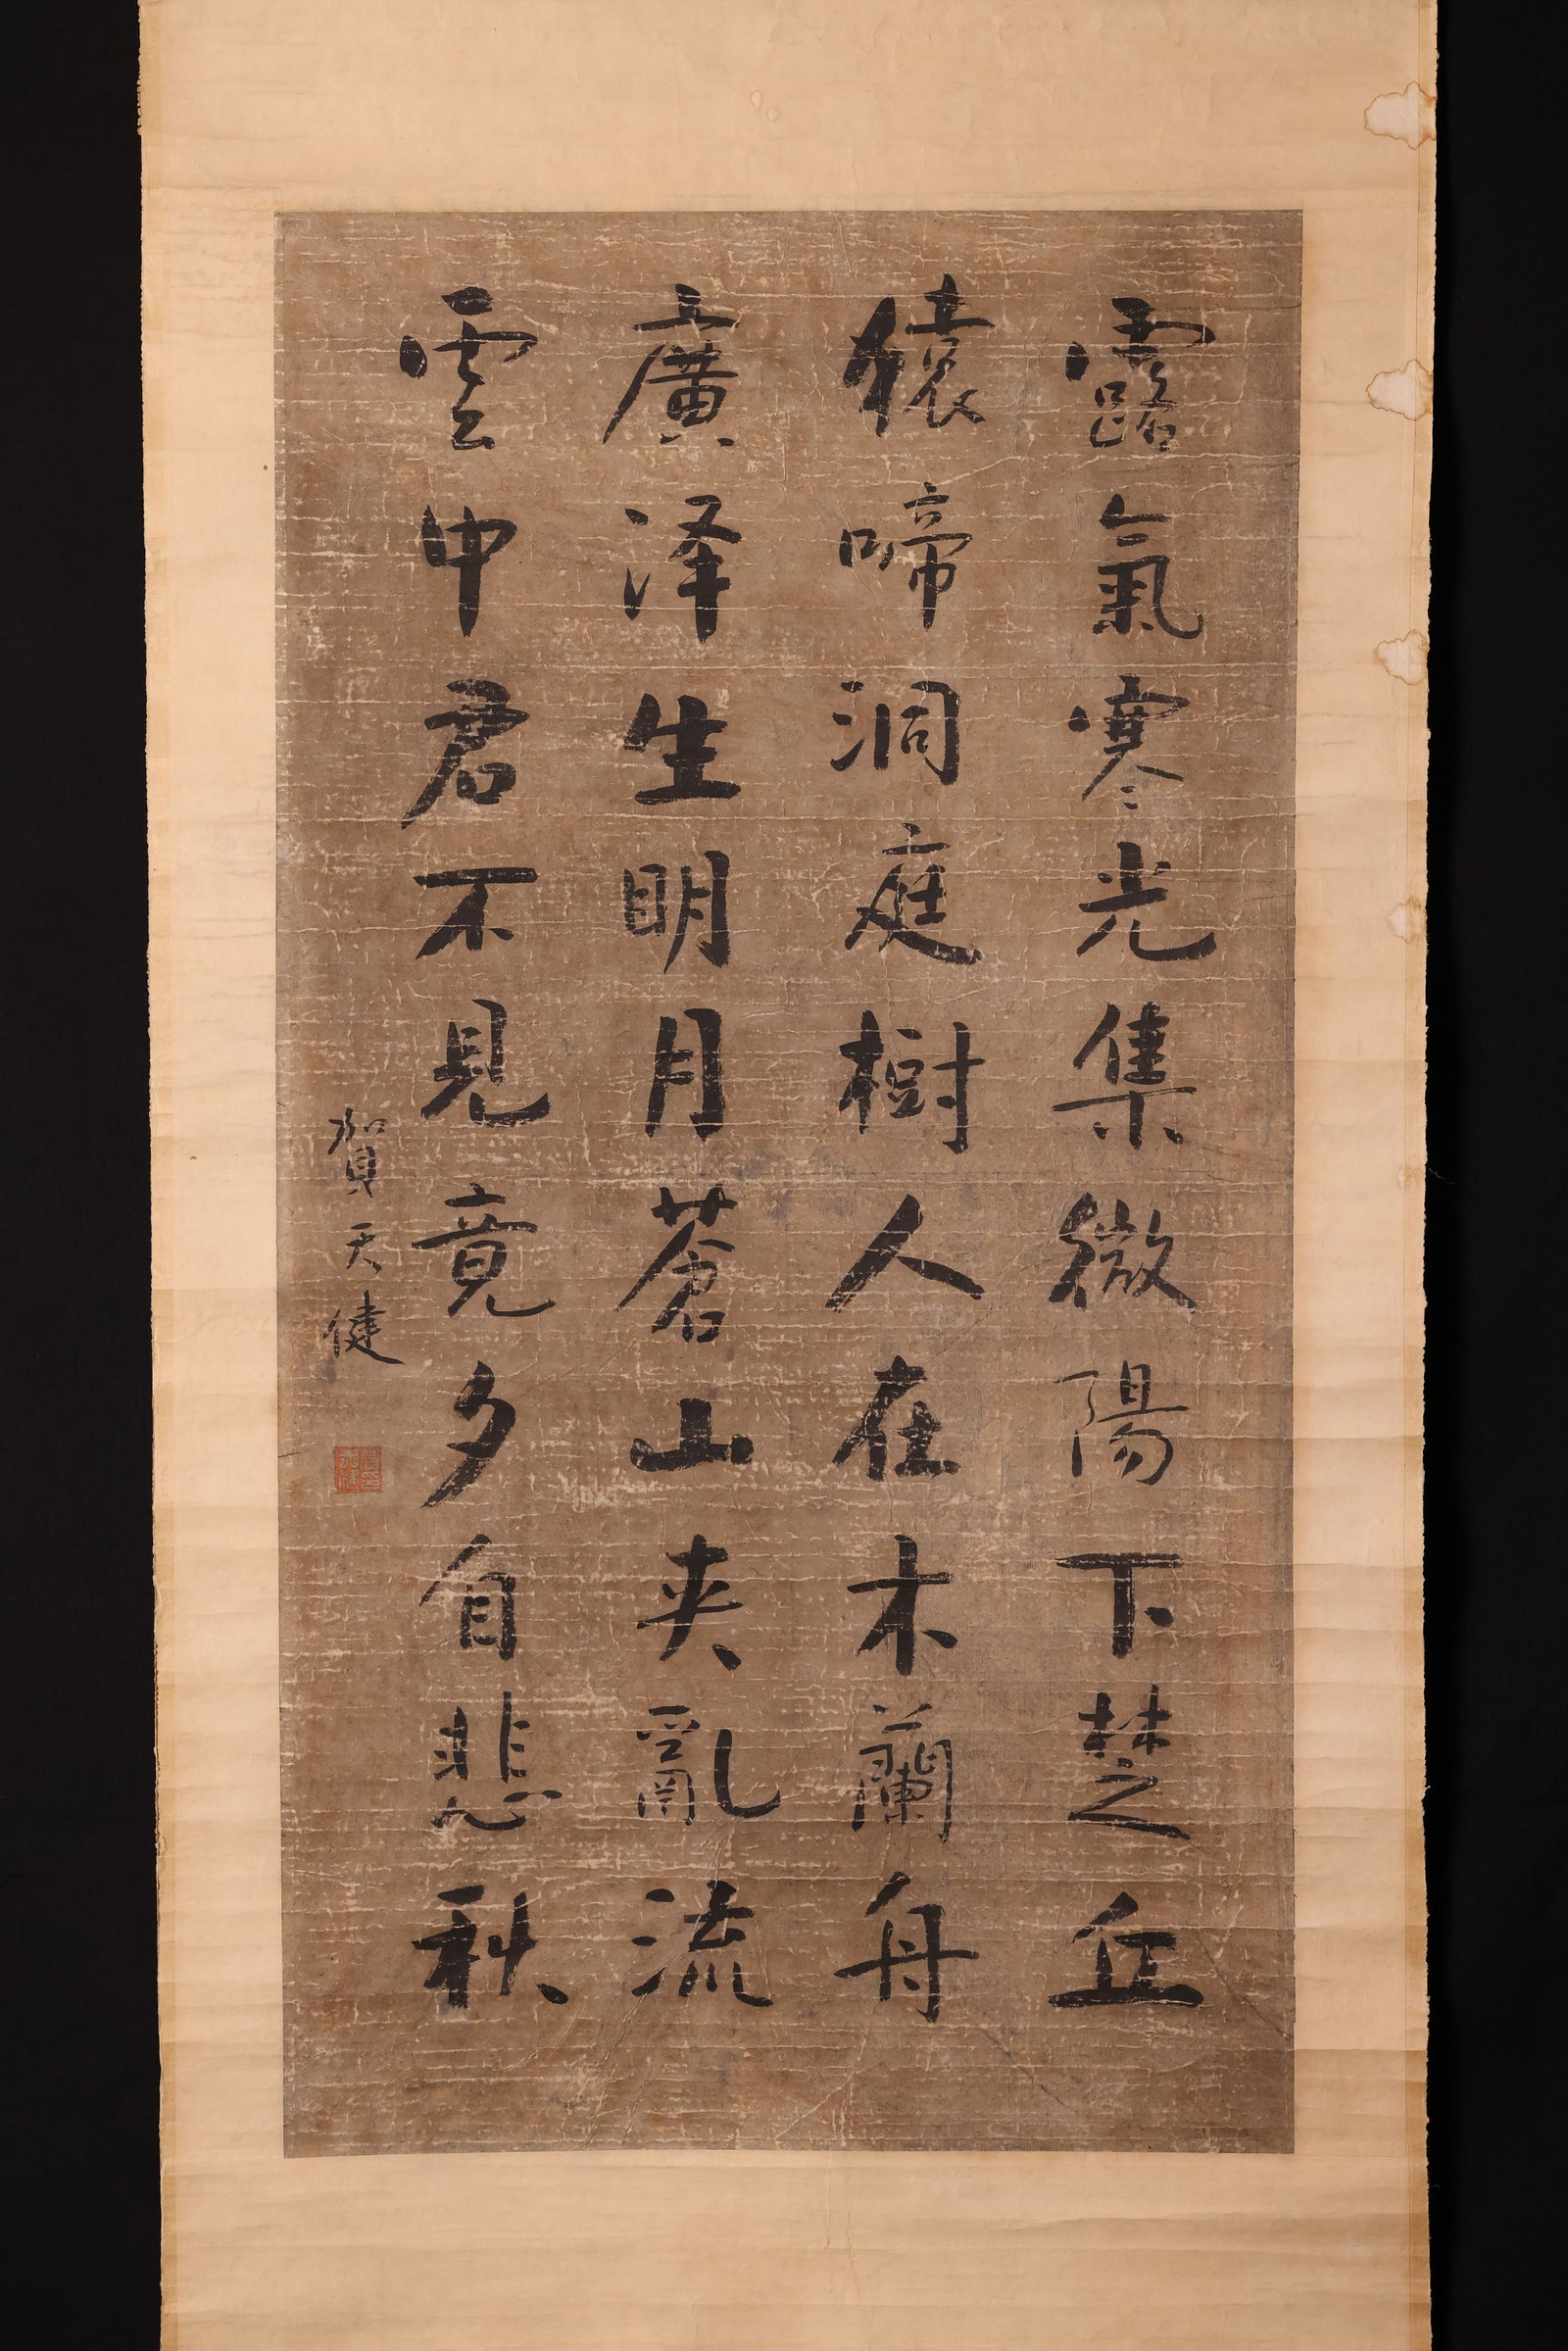 露氣寒光集微陽下楚丘
猿啼洞庭樹人在木蘭舟
廣泽生明月蒼山夾亂流
雲中君不見竟夕自悲秋
賀天健